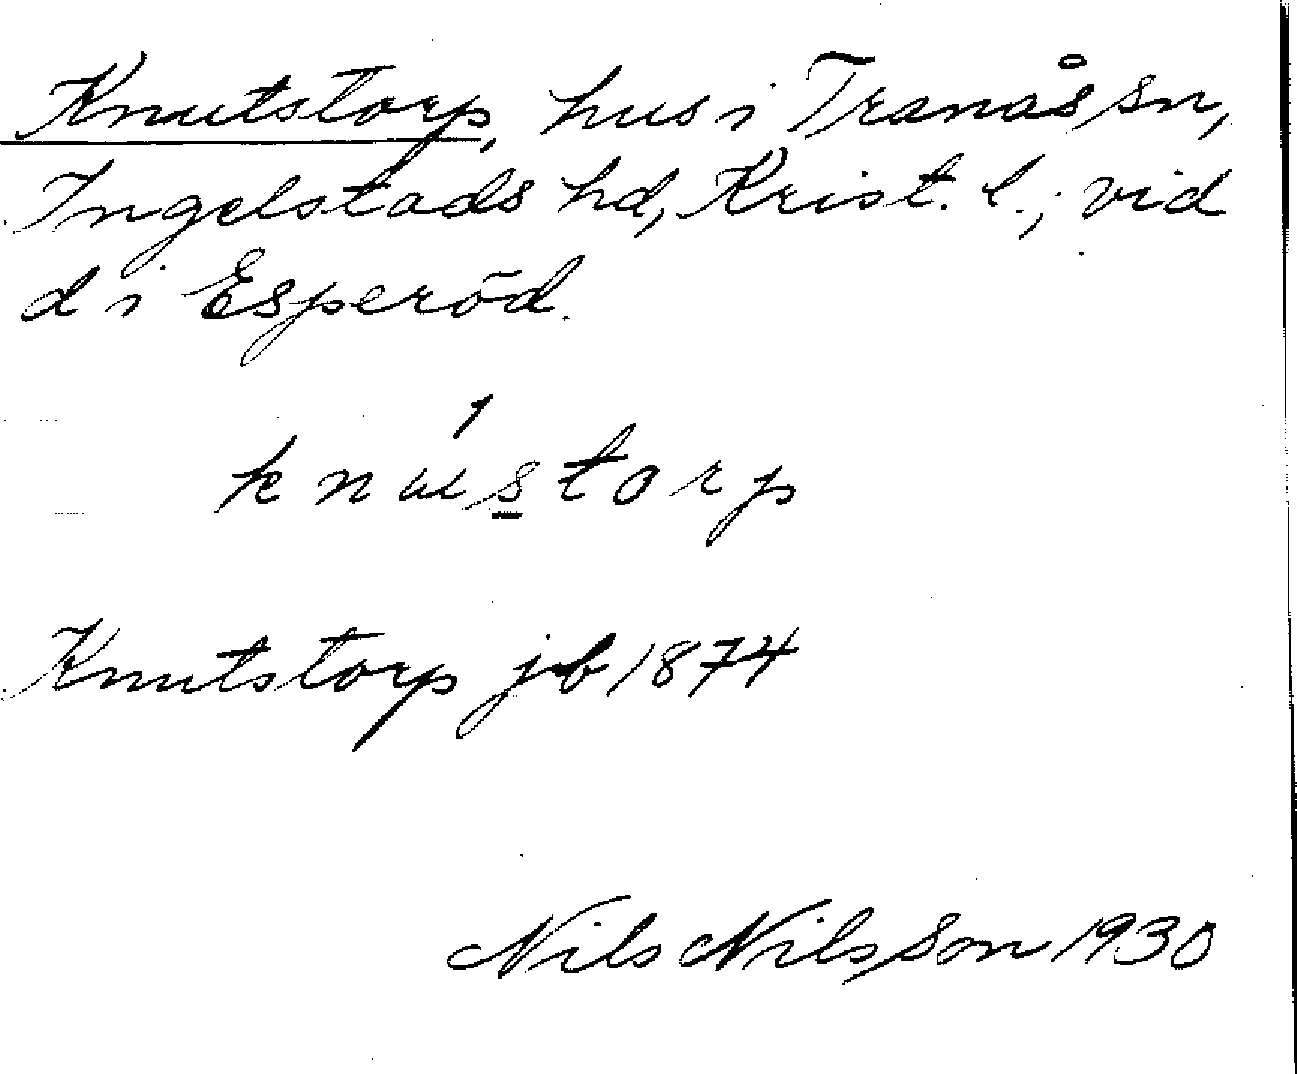 Knutstorp, hus i Tranås sn,
Ingelstads hd, Krist. l.; vid
d i Esperöd.
knústorp
Knutstorp jb 1874
Nils Nilsson 1930